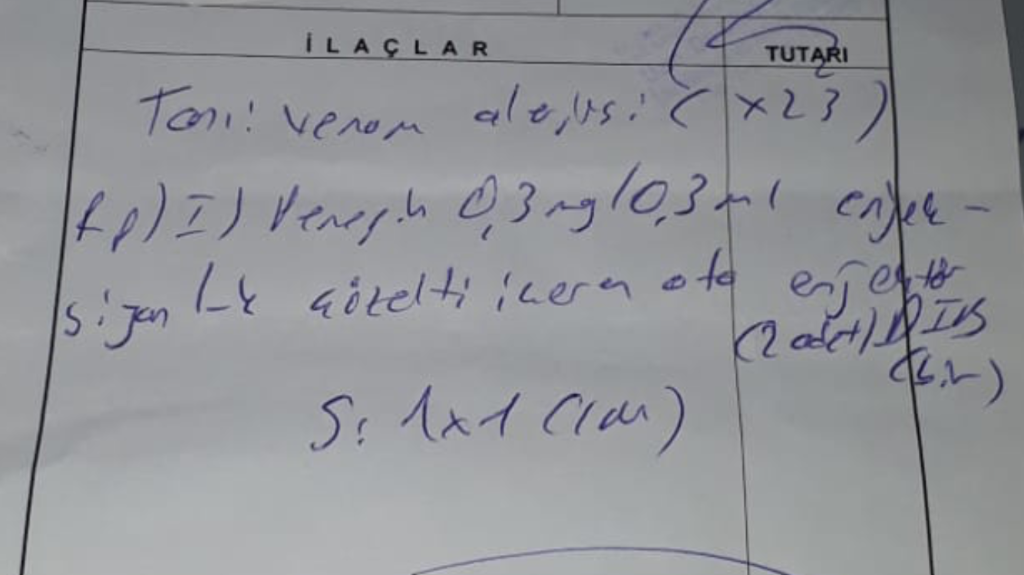 İLAÇLAR TUTARI
Tanı: venom alerjisi (x23)
Rp) I) Penepin 0,3 mg/0,3 ml enjek-
siyonluk çözelti içeren oto enjektör
(2 adet) D I B
(bir)
S: 1x1 (im)